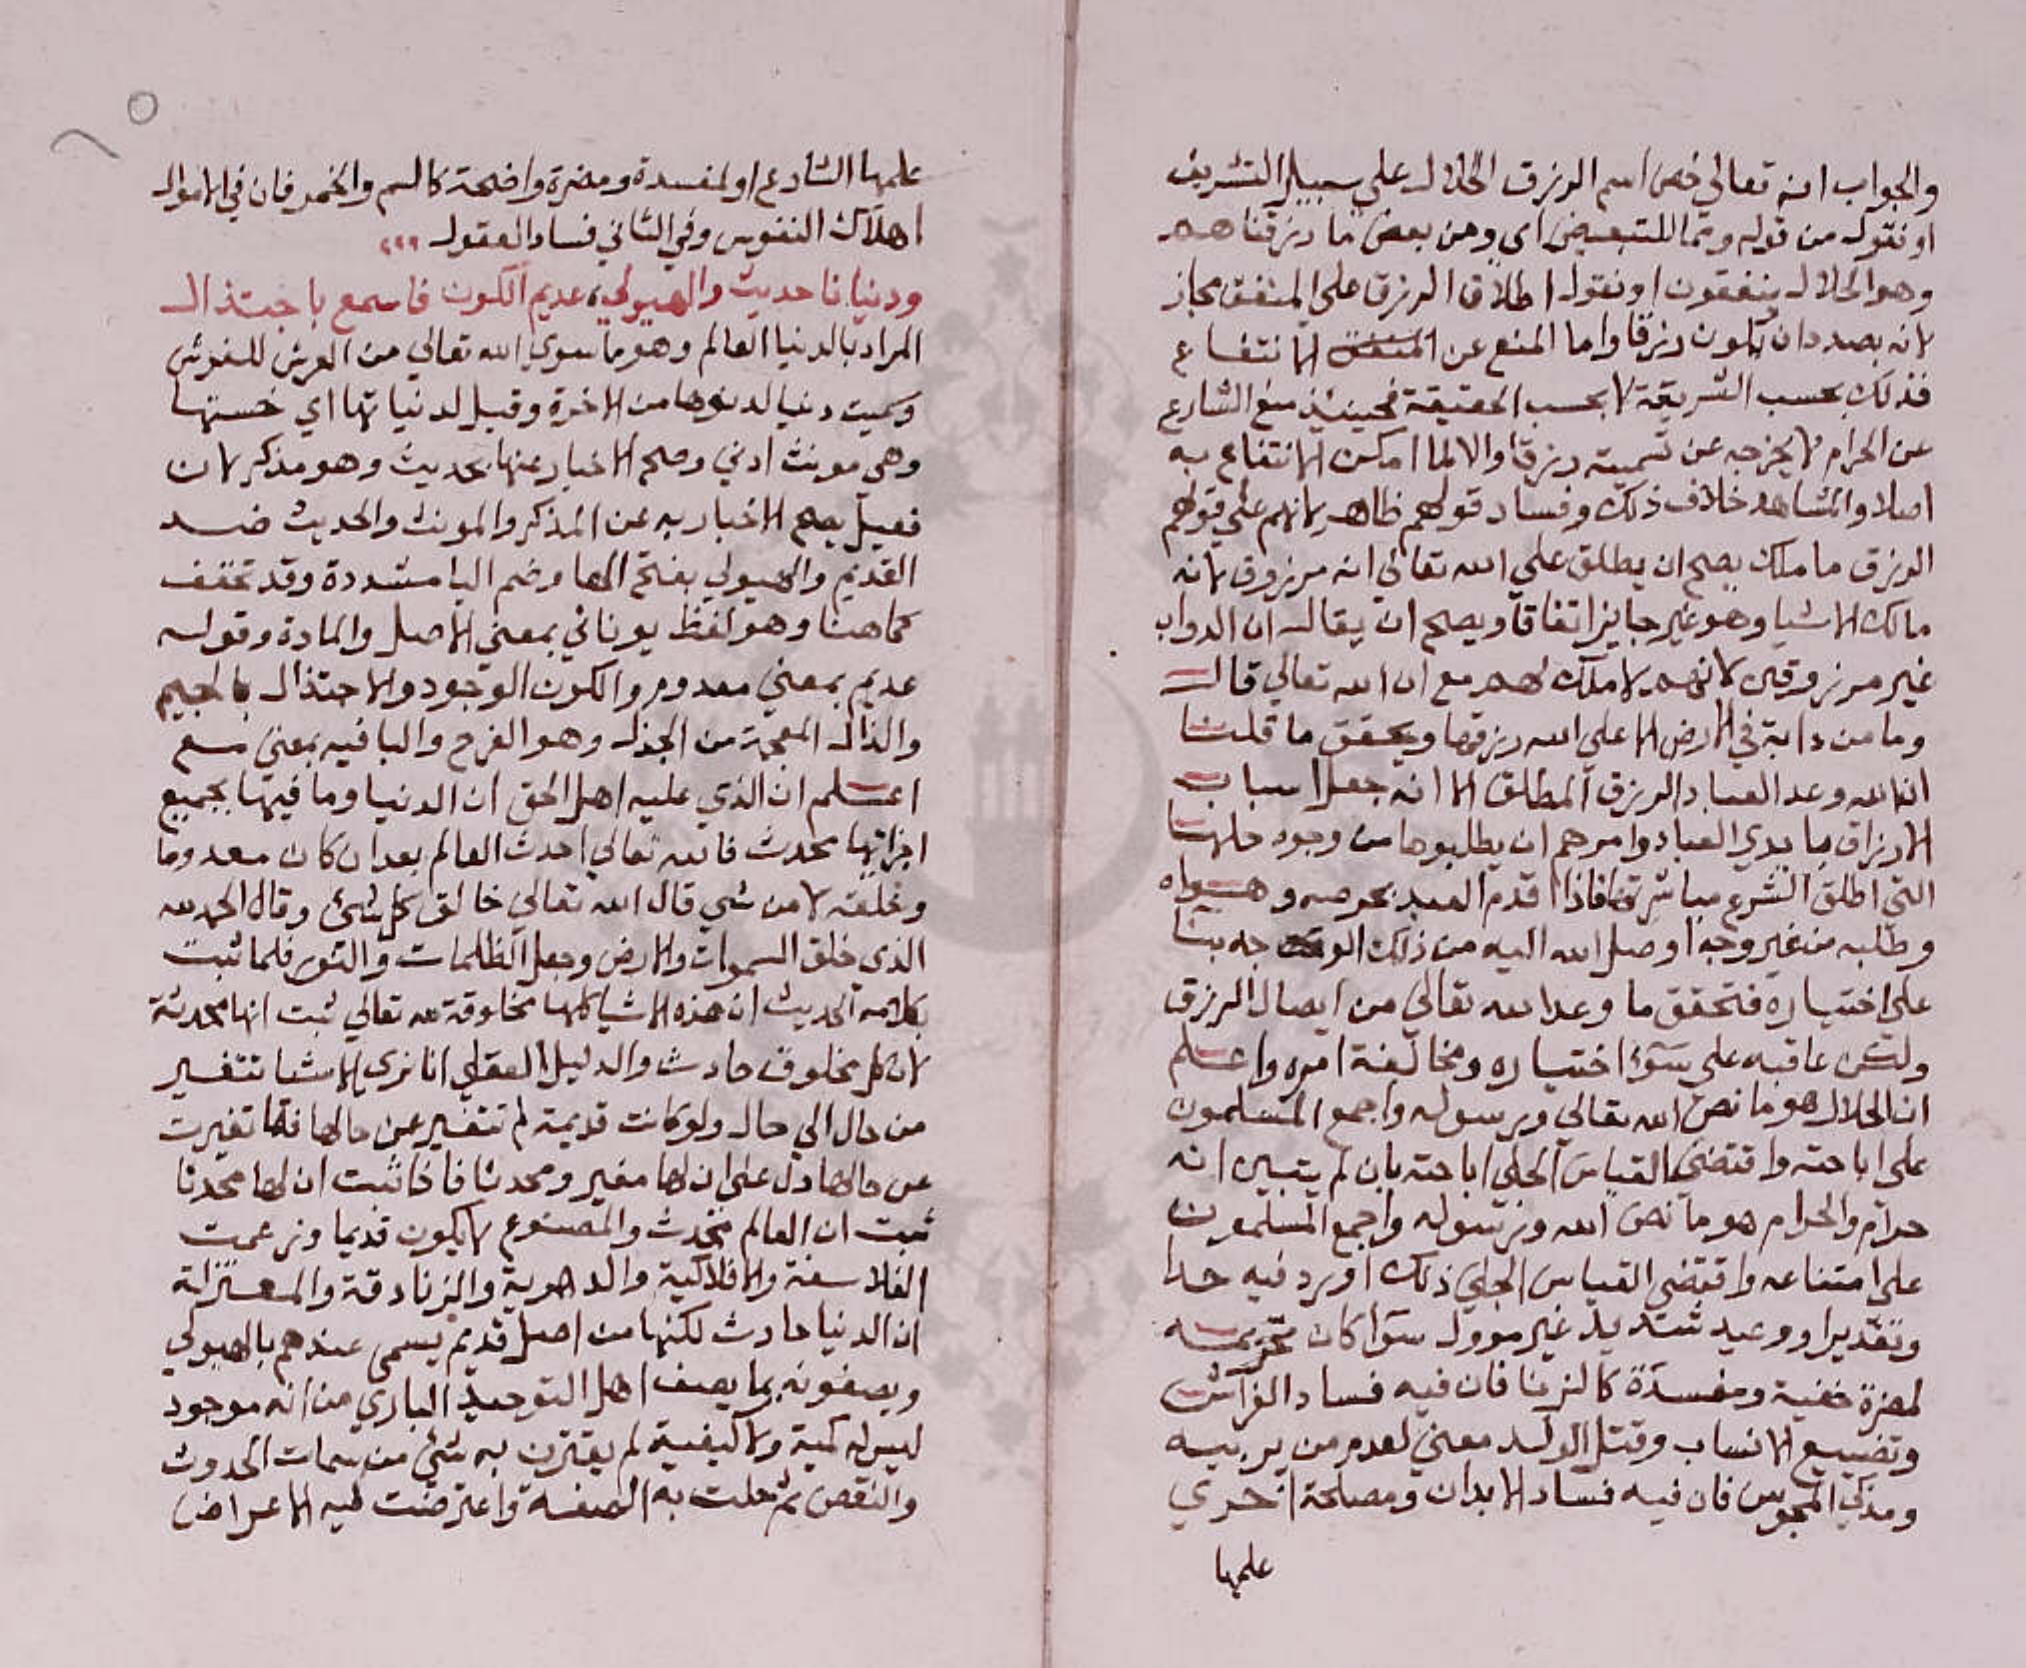 والجواب انه تعالي خص اسم الرزق الحلال علي سبيل التشريف
او نقول من قوله ومما للتبعيض اي ومن بعض ما رزقناهم
وهو الحلال ينفقون او نقول اطلاق الرزق علي المنفق مجاز
لانه بصدد ان يكون رزقا واما المنع عن الانتفاع
فذلك بحسب الشريعة لا بحسب الحقيقة فحينيذ منع الشارع
عن الحرام لا يخرجه عن تسميته رزقا والا لما امكن الانتفاع به
اصلا والمشاهد خلاف ذلك وفساد قولهم ظاهر لانهم علي قولهم
الرزق ما ملك يصح ان يطلق علي الله تعالي انه مرزوق لانه
مالك الاشيا وهو غير جايز اتفاقا ويصح ان يقال ان الدواب
غير مرزوقين لانهم لا ملك لهم مع ان الله تعالي قال
وما من دابة في الارض الا علي الله رزقها ويحقق ما قلنا
ان الله وعد العباد الرزق المطلق الا انه جعل اسباب
الارزاق بايدي العباد وامرهم ان يطلبوها من وجوه حلها
التي اطلق الشرع مباشرتها فاذا اقدم العبد بحرصه وهواه
وطلبه من غير وجه اوصل الله اليه من ذلك الوجه بنا
علي اختياره فتحقق ما وعد الله تعالي من ايصال الرزق
ولكن عاقبه علي سوء اختياره ومخالفة امره واعلم
ان الحلال هو ما نص الله تعالي ورسوله واجمع المسلمون
علي اباحته واقتضي القياس الجلي اباحته بان لم يتبين انه
حرام والحرام هو ما نص الله ورسوله واجمع المسلمون
علي امتناعه واقتضي القياس الجلي ذلك او ورد فيه حدا
وتقديرا ووعيد شديد غير موول سوا كان تحريمه
لمضرة خفية ومفسدة كالزنا فان فيه فساد الفراش
وتضييع الانساب وقتل الولد معني لعدم من يربيه
ومذكي المجوس فان فيه فساد الابدان ومصلحة اخري
علمها
علمها الشارع او لمفسدة ومضرة واضحة كالسم والخمر فان في الاول
اهلاك النفوس وفي الثاني فساد العقول
ودنيانا حديث والهيولي عديم الكون فاسمع باجتذال
المراد بالدنيا العالم وهو ما سوي الله تعالي من العرش للفرش
وسميت دنيا لدنوها من الاخرة وقيل لدنياتها اي خستها
وهي مونث ادني وصح الاخبار عنها بحديث وهو مذكر لان
فعيل يصح الاخبار به عن المذكر والمونث والحديث ضد
القديم والهيولي بفتح الها وضم اليا مشددة وقد تخفف
كما هنا وهو لفظ يوناني بمعني الاصل والمادة وقوله
عديم بمعني معدوم والكون الوجود والاجتذال بالجيم
والذال المعجمة من الجذل وهو الفرح والبا فيه بمعني مع
اعلم ان الذي عليه اهل الحق ان الدنيا وما فيها بجميع
اجزائها محدث فالله تعالي احدث العالم بعد ان كان معدوما
وخلقه لا من شي قال الله تعالي خالق كل شئ وقال الحمد لله
الذي خلق السموات والارض وجعل الظلمات والنور فلما ثبت
بكلامه الحديث ان هذه الاشيا كلها مخلوقة لله تعالي ثبت انها محدثة
لان كل مخلوق حادث والدليل العقلي انا نري الاشيا تتغير
من حال الي حال ولو كانت قديمة لم تتغير عن حالها فلما تغيرت
عن حالها دل علي ان لها مغير ومحدثا فاذا ثبت ان لها محدثا
ثبت ان العالم محدث والمصنوع لا يكون قديما وزعمت
الفلاسفة والافلاكية والدهرية والزنادقة والمعتزلة
ان الدنيا حادث لكنها من اصل قديم يسمي عندهم بالهيولي
ويصفونه بما يصف اهل التوحيد الباري من انه موجود
ليس له كمية ولا كيفية لم يقترن به شئ من سمات الحدوث
والنقص ثم حلت به الصفة واعترضت فيه الاعراض